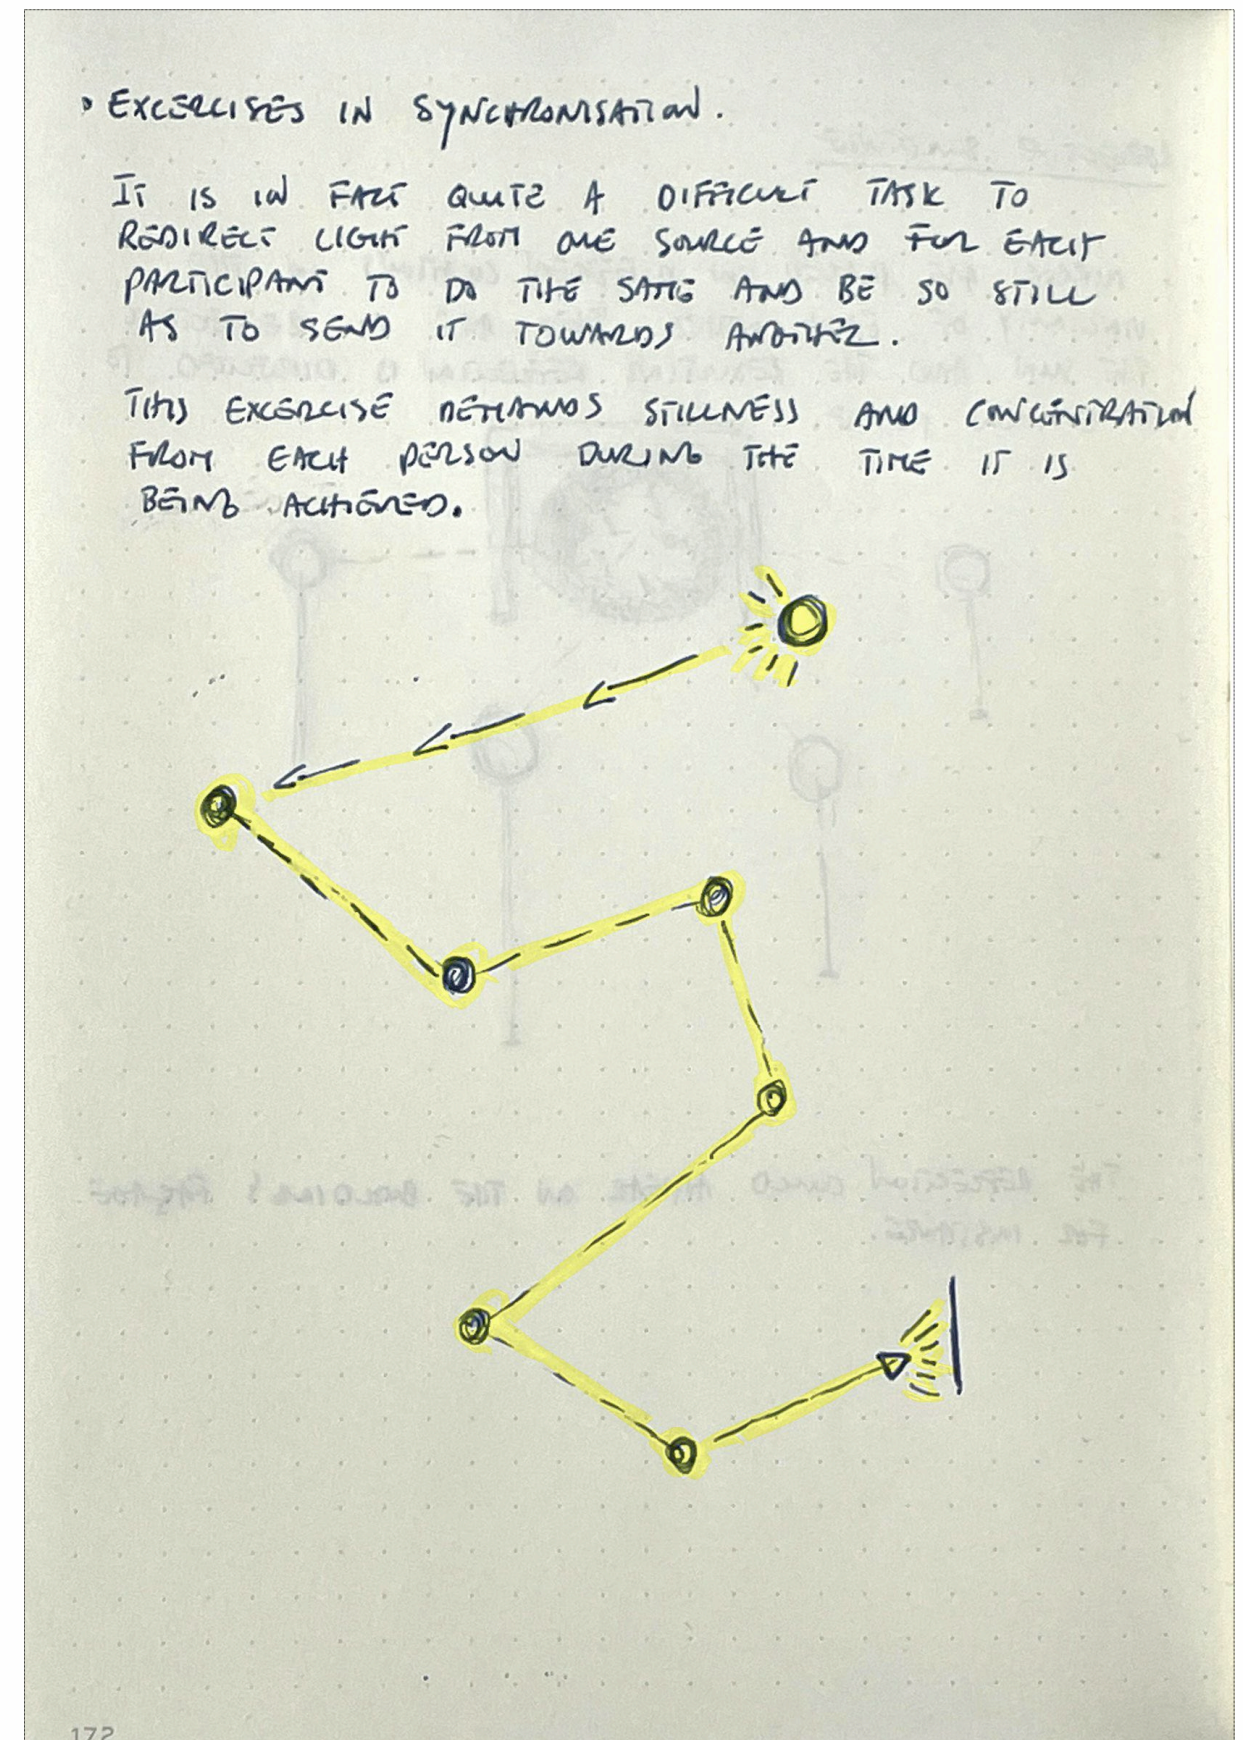 EXCERCISES IN SYNCHRONISATION.
IT IS IN FACT QUITE A DIFFICULT TASK TO
REDIRECT LIGHT FROM ONE SOURCE AND FOR EACH
PARTICIPANT TO DO THE SAME AND BE SO STILL
AS TO SEND IT TOWARDS ANOTHER.
THIS EXCERCISE DEMANDS STILLNESS AND CONCENTRATION
FROM EACH PERSON DURING THE TIME IT IS
BEING ACHIEVED.
172